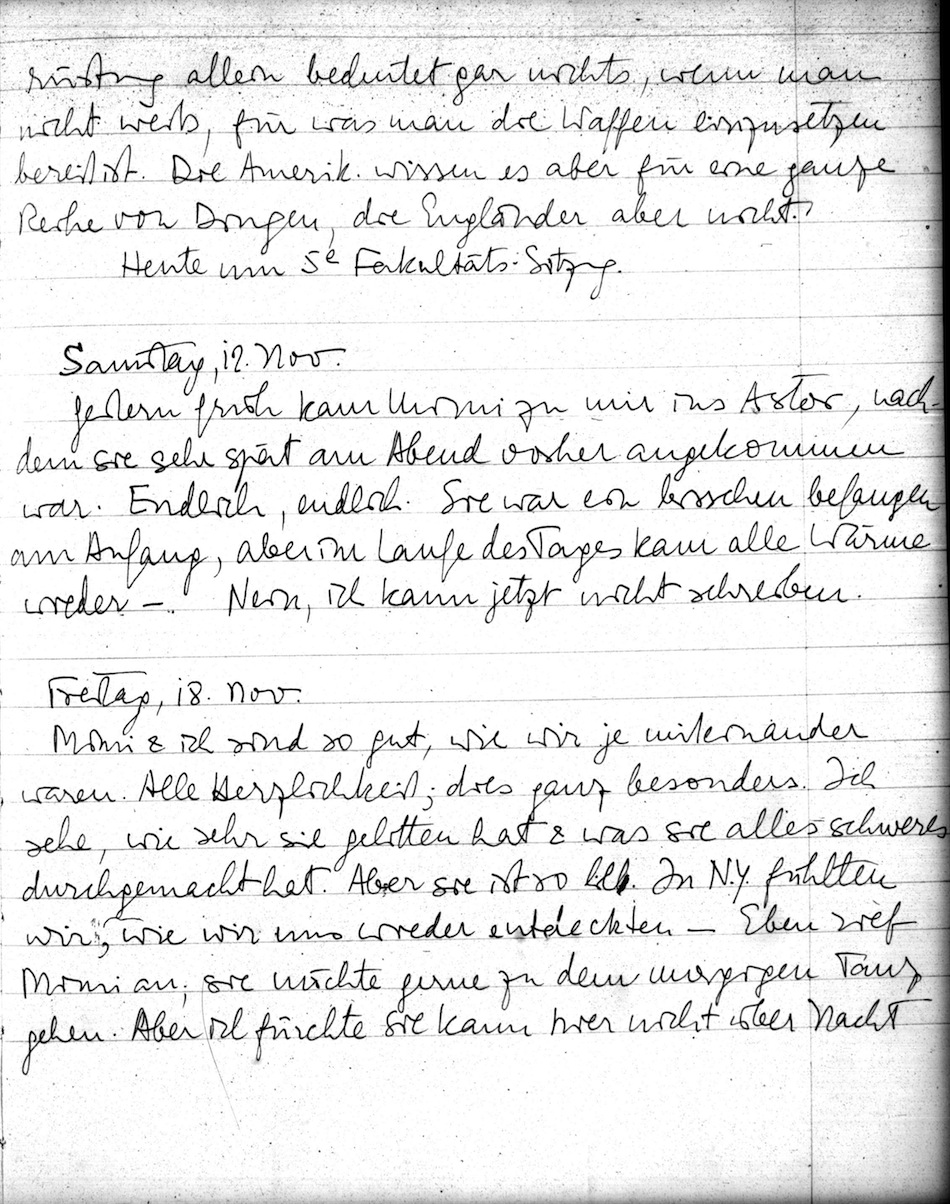 rüstung allein bedeutet gar nichts, wenn man
nicht weis, für was man die Waffen einzusetzen
bereit ist. Die Amerik. wissen es aber für eine ganze
Reihe von Dingen, die Engländer aber nicht.
Heute um 5e Fakultäts-Sitzg.
Samstag, 12. Nov.
Gestern früh kam Mimi zu mir ins Astor, nach-
dem sie sehr spät am Abend vorher angekommen
war. Endlich, endlich. Sie war ein bisschen befangen
am Anfang, aber im Laufe des Tages kam alle Wärme
wieder –. Nein, ich kann jetzt nicht schreiben.
Freitag, 18. Nov.
Mimi & ich sind so gut, wie wir je miteinander
waren. Alle Herzlichkeit; dies ganz besonders. Ich
sehe, wie sehr sie gelitten hat & was sie alles schweres
durchgemacht hat. Aber sie ist so lieb. In N.Y. fühlten
wir, wie wir uns wieder entdeckten – Eben rief
Mimi an, sie möchte gerne zu dem morgigen Tanz
gehen. Aber ich fürchte sie kann hier nicht über Nacht